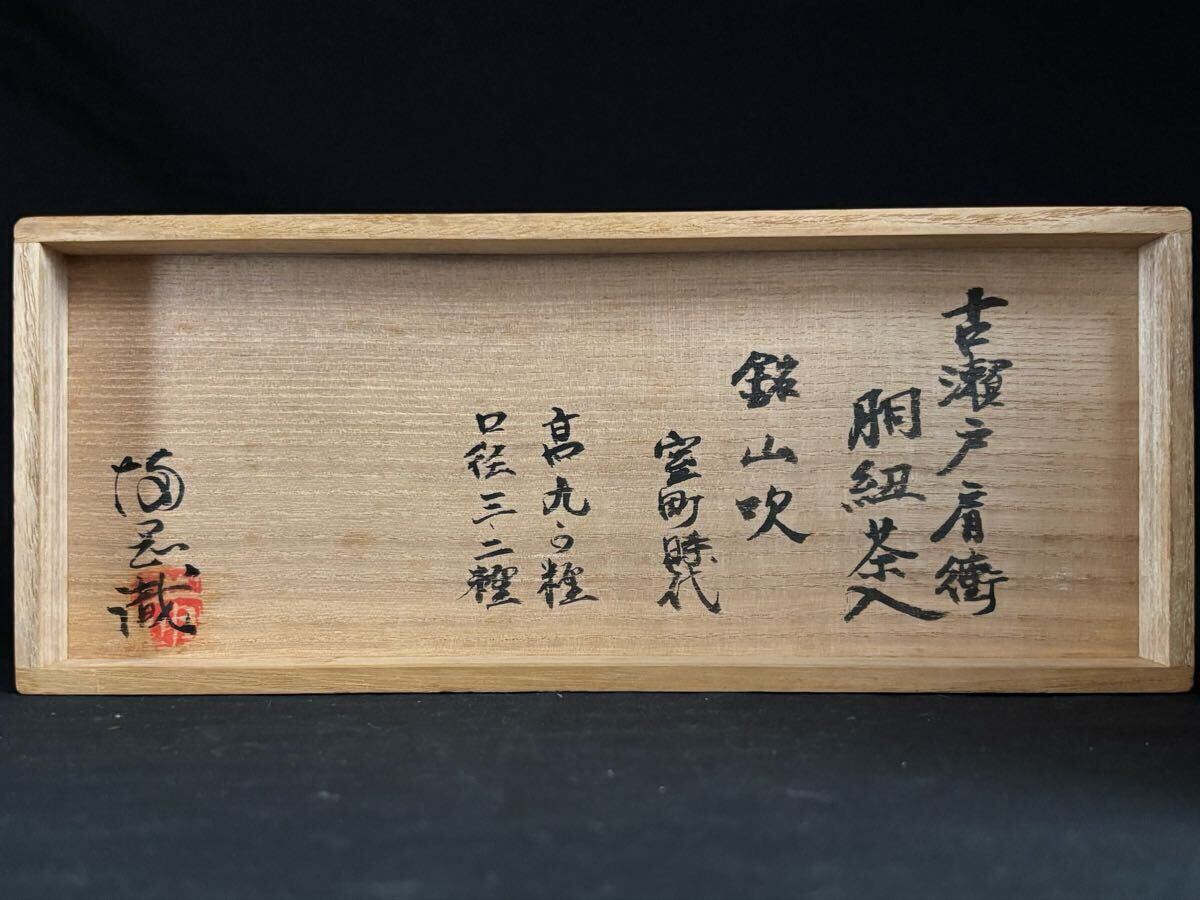 古瀬戸肩衝
胴紐茶入
銘山吹
室町時代
高九.〇糎
口径三.二糎
識